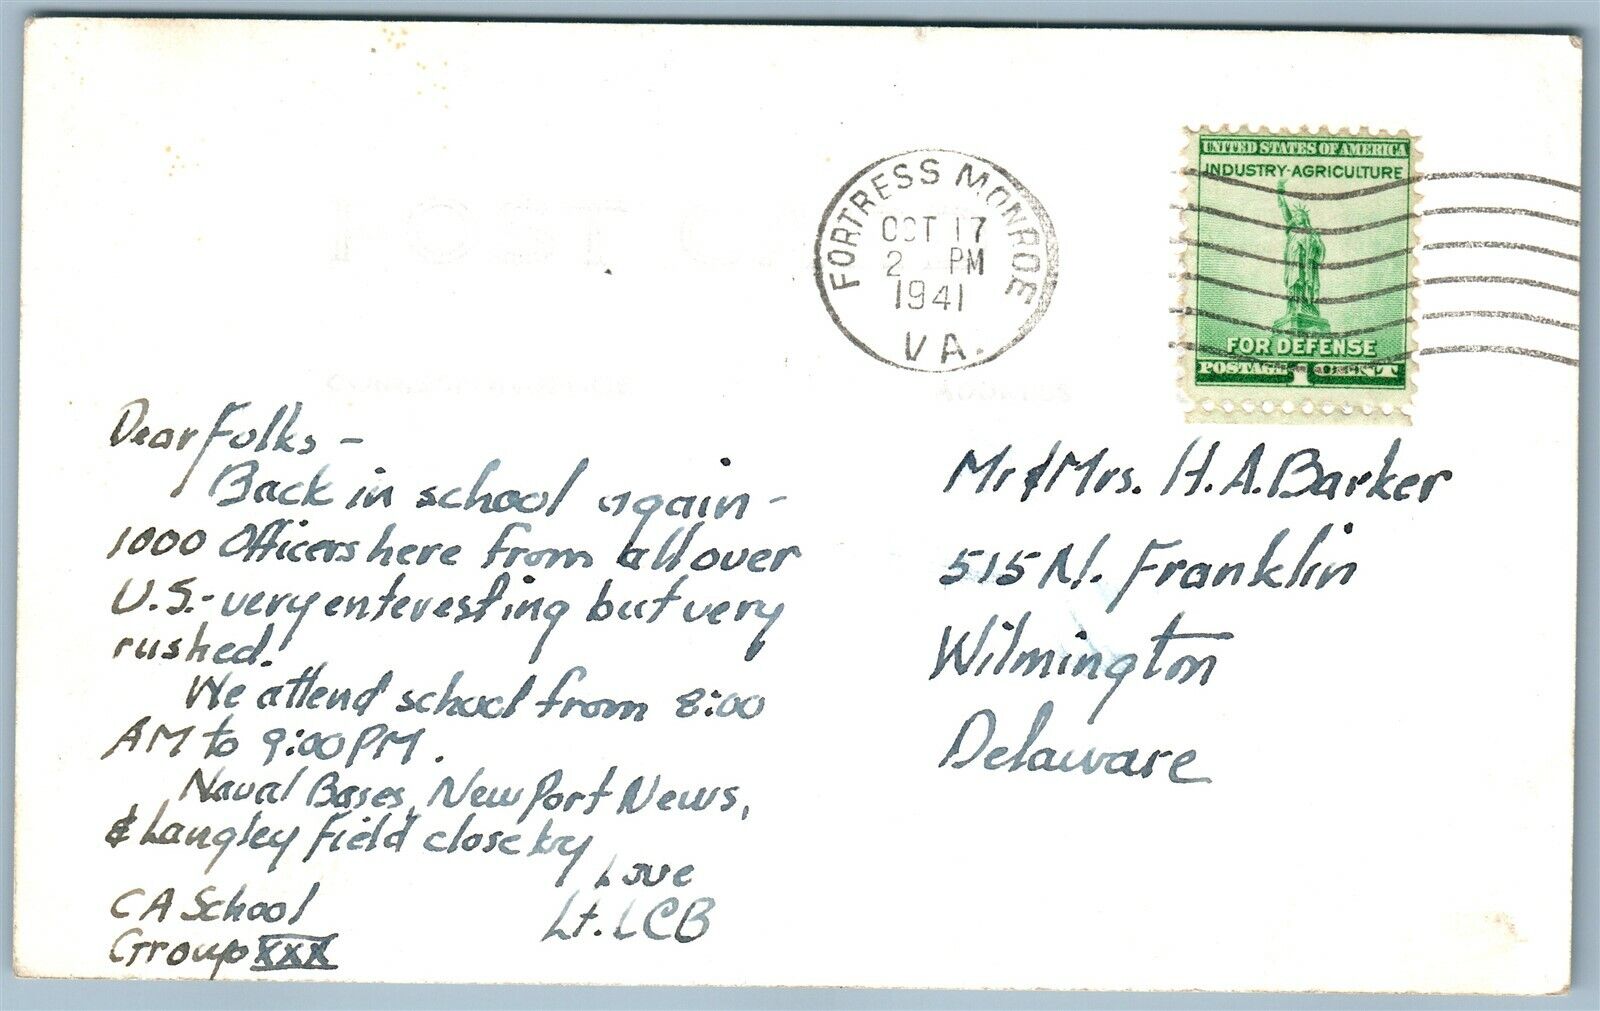 FORTRESS MONROE
OCT 17
2 PM
1941
VA.
UNITED STATES OF AMERICA
INDUSTRY-AGRICULTURE
FOR DEFENSE
POSTAGE 1 CENT
POST
CORRESPONDENCE
ADDRESS
Dear Folks -
Back in school again -
1000 Officers here from all over
U.S.- very enteresting but very
rushed.
We attend school from 8:00
AM to 9:00 PM.
Naval Bases, New Port News,
& Langley Field close by
Love
Lt. LCB
CA School
Group XXX
Mr & Mrs. H. A. Barker
515 N. Franklin
Wilmington
Delaware